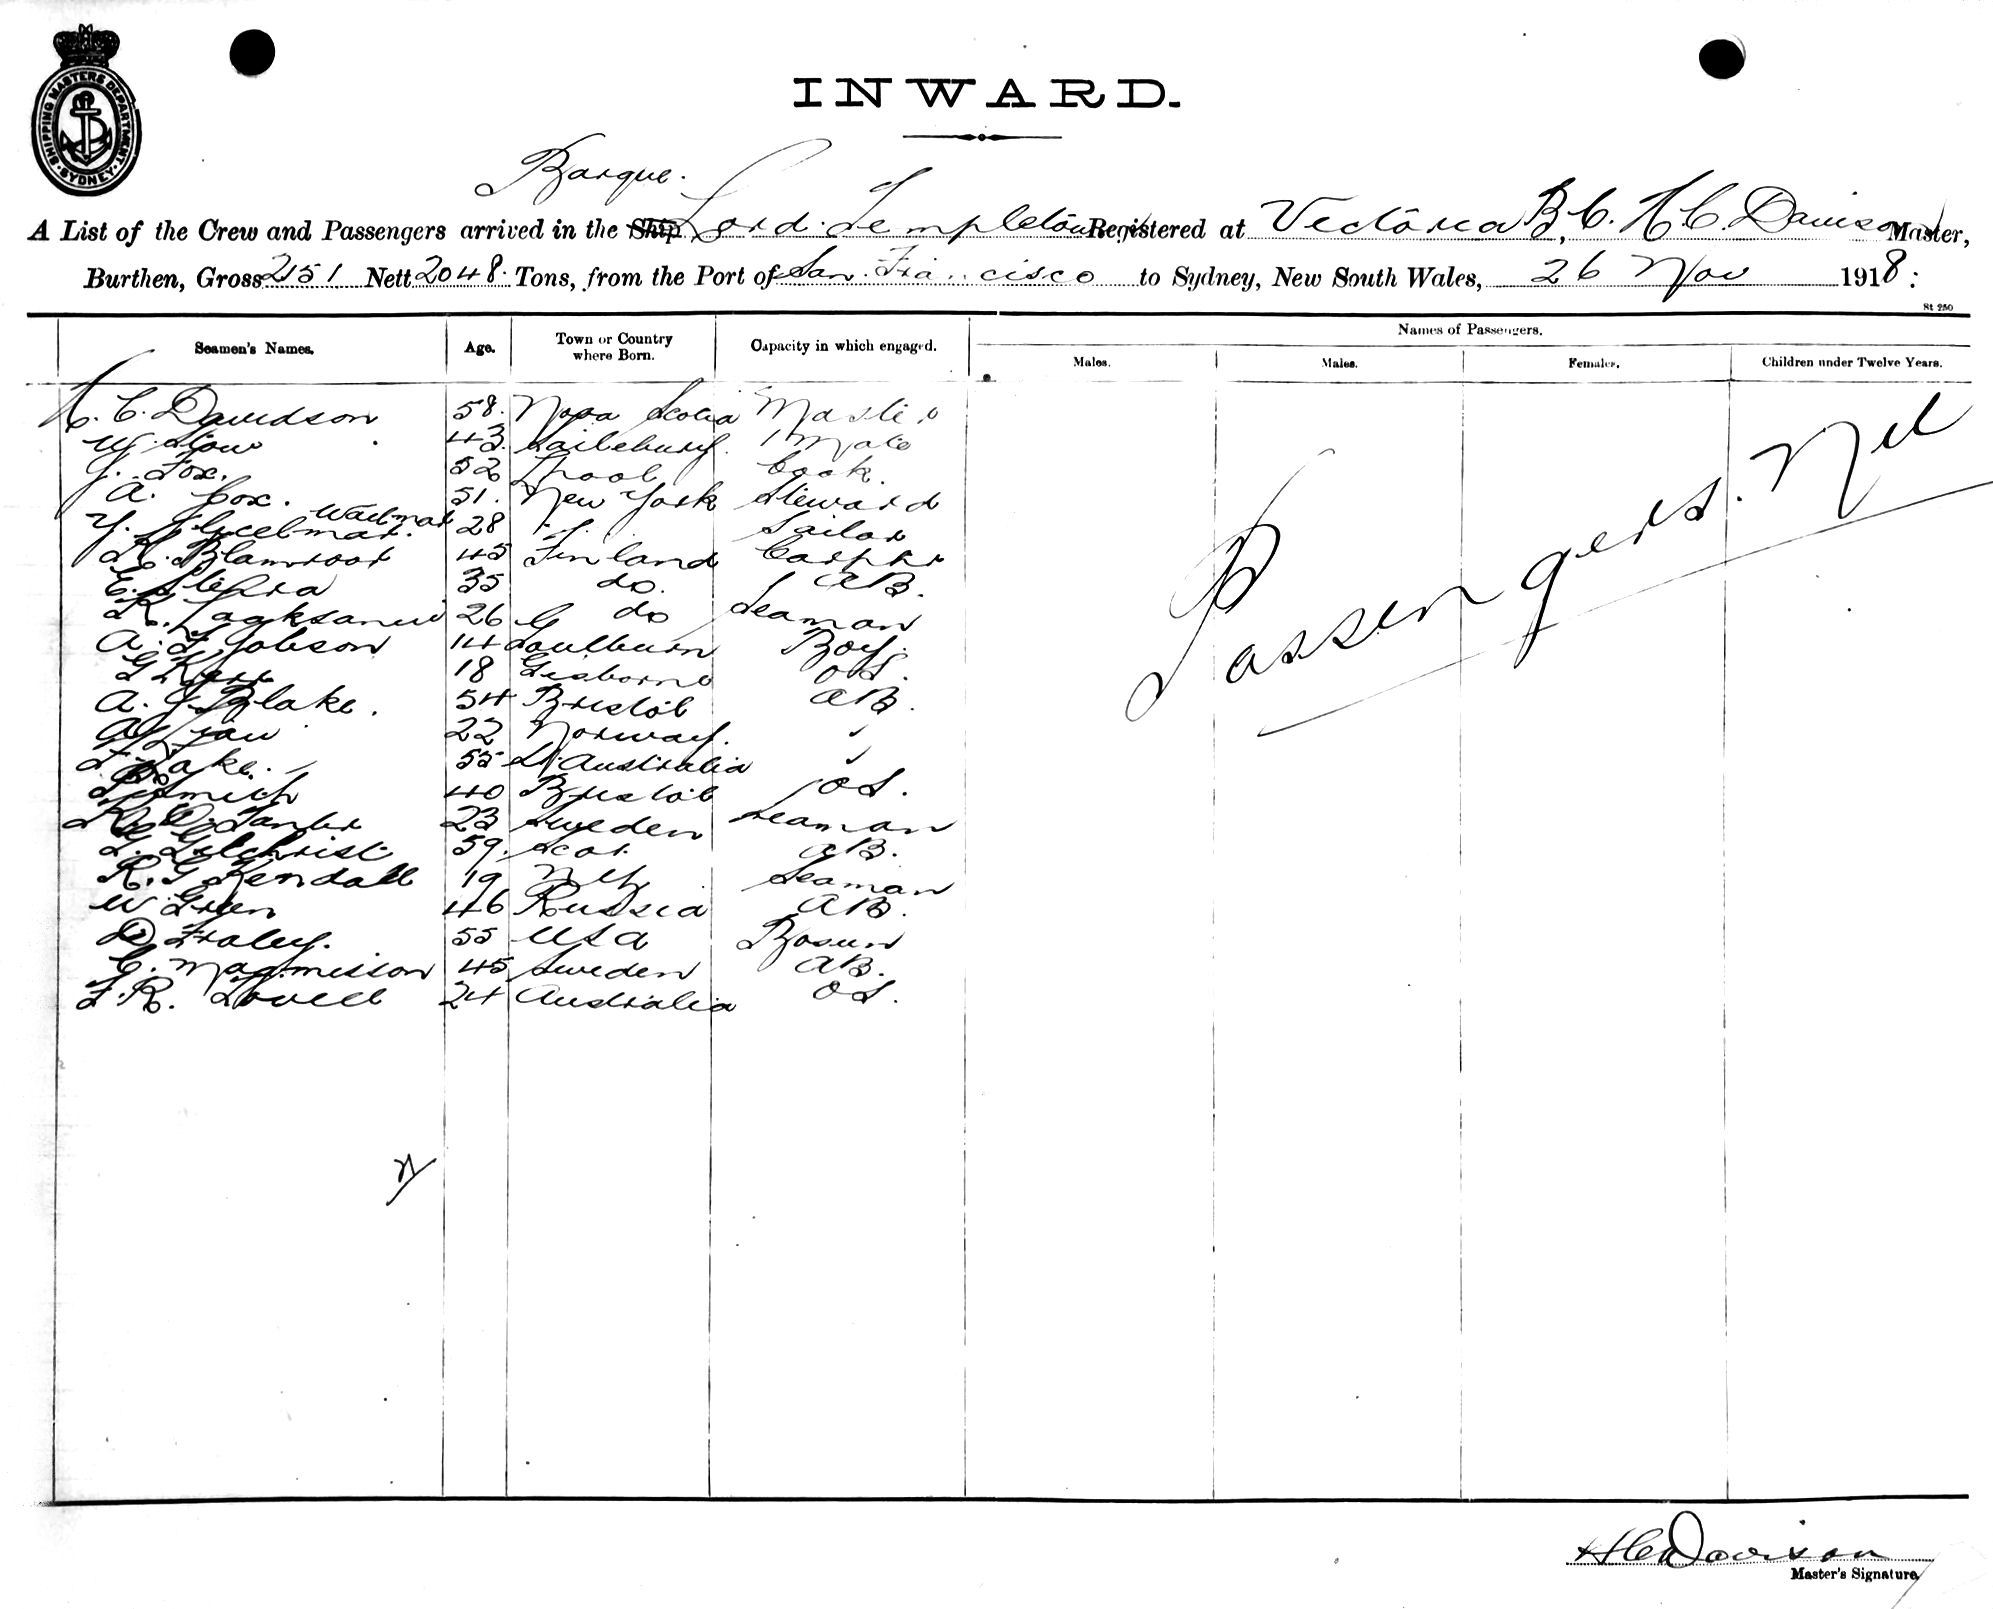 SHIPPING MASTERS DEPARTMENT
SYDNEY
INWARD.
Barque.
A List of the Crew and Passengers arrived in the Ship Lord Templeton Registered at Victoria B.C. H C. Davison Master,
Burthen, Gross 2151 Nett 2048. Tons, from the Port of San Francisco to Sydney, New South Wales, 26 Nov 1918:
St 250
Seamen's Names. Age. Town or Country where Born. Capacity in which engaged. Names of Passengers.
Males. Males. Females. Children under Twelve Years.
H. C. Davidson 58. Nova Scotia Master
W. 43. 1 Mate
J. Fox. 52 Lpool Cook.
A. Cox. 51. New York Steward
28 Sailor
45 Finland Carptr
E. 35 do. AB.
K. 26 do Seaman
A. Jobson 14 Goulburn Boy.
G Kerr 18 Gisborne OS.
A. J. Blake. 54 Bristol AB.
22 Norway. "
F Lake. 55 Australia "
Smith 40 Bristol OS.
23 Sweden Seaman
Gilchrist 59. Scot. AB.
R. G Kendall 19 Seaman
W Green 46 Russia AB.
D Fraley. 55 USA Bosun
C. Magnusson 45 Sweden AB.
F. R. Lovell 24 Australia OS.
Passengers. Nil
H C Davison
Master's Signature